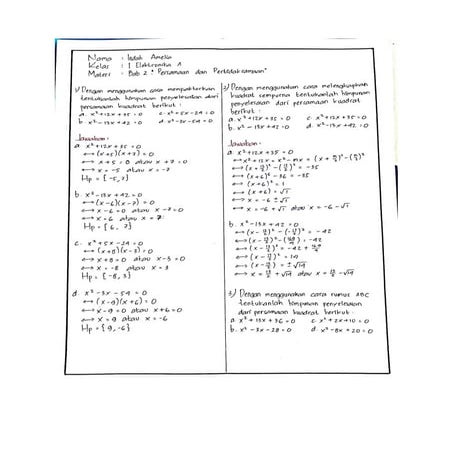 Nama : Indah Amelia
Kelas : 1 Elektronika A
Materi : Bab 2 " Persamaan dan Pertidaksamaan"
1) Dengan menggunakan cara memfaktorkan
tentukanlah himpunan penyelesaian dari
persamaan kuadrat berikut :
a. x²+12x+35=0 c. x²+5x-24=0
b. x²-13x+42=0 d. x²-3x-54=0
Jawaban :
a. x²+12x+35=0
↔ (x+5)(x+7)=0
↔ x+5=0 atau x+7=0
↔ x=-5 atau x=-7
Hp = {-5,7}
b. x²-13x+42=0
↔ (x-6)(x-7)=0
↔ x-6=0 atau x-7=0
↔ x=6 atau x=7
Hp = {6, 7}
c. x²+5x-24=0
↔ (x+8)(x-3)=0
↔ x+8=0 atau x-3=0
↔ x=-8 atau x=3
Hp = {-8,3}
d. x²-3x-54=0
↔ (x-9)(x+6)=0
↔ x-9=0 atau x+6=0
↔ x=9 atau x=-6
Hp = {9,-6}
2) Dengan menggunakan cara melengkapkan
kuadrat sempurna tentukanlah himpunan
penyelesaian dari persamaan kuadrat
berikut :
a. x²+12x+35=0
b. x²-13x+42=0
Jawaban :
a. x²+12x+35=0
↔ (x+6)²-36=-35
↔ (x+6)²=1
↔ (x+6)=√1
↔ x=-6±√1
↔ x=-6+√1 atau x=-6-√1
b. x²-13x+42=0
3) Dengan menggunakan cara rumus ABC
tentukanlah himpunan penyelesaian
dari persamaan kuadrat berikut :
a. x²+13x+36=0 c. x²+2x+10=0
b. x²-3x-28=0 d. x²-8x+20=0